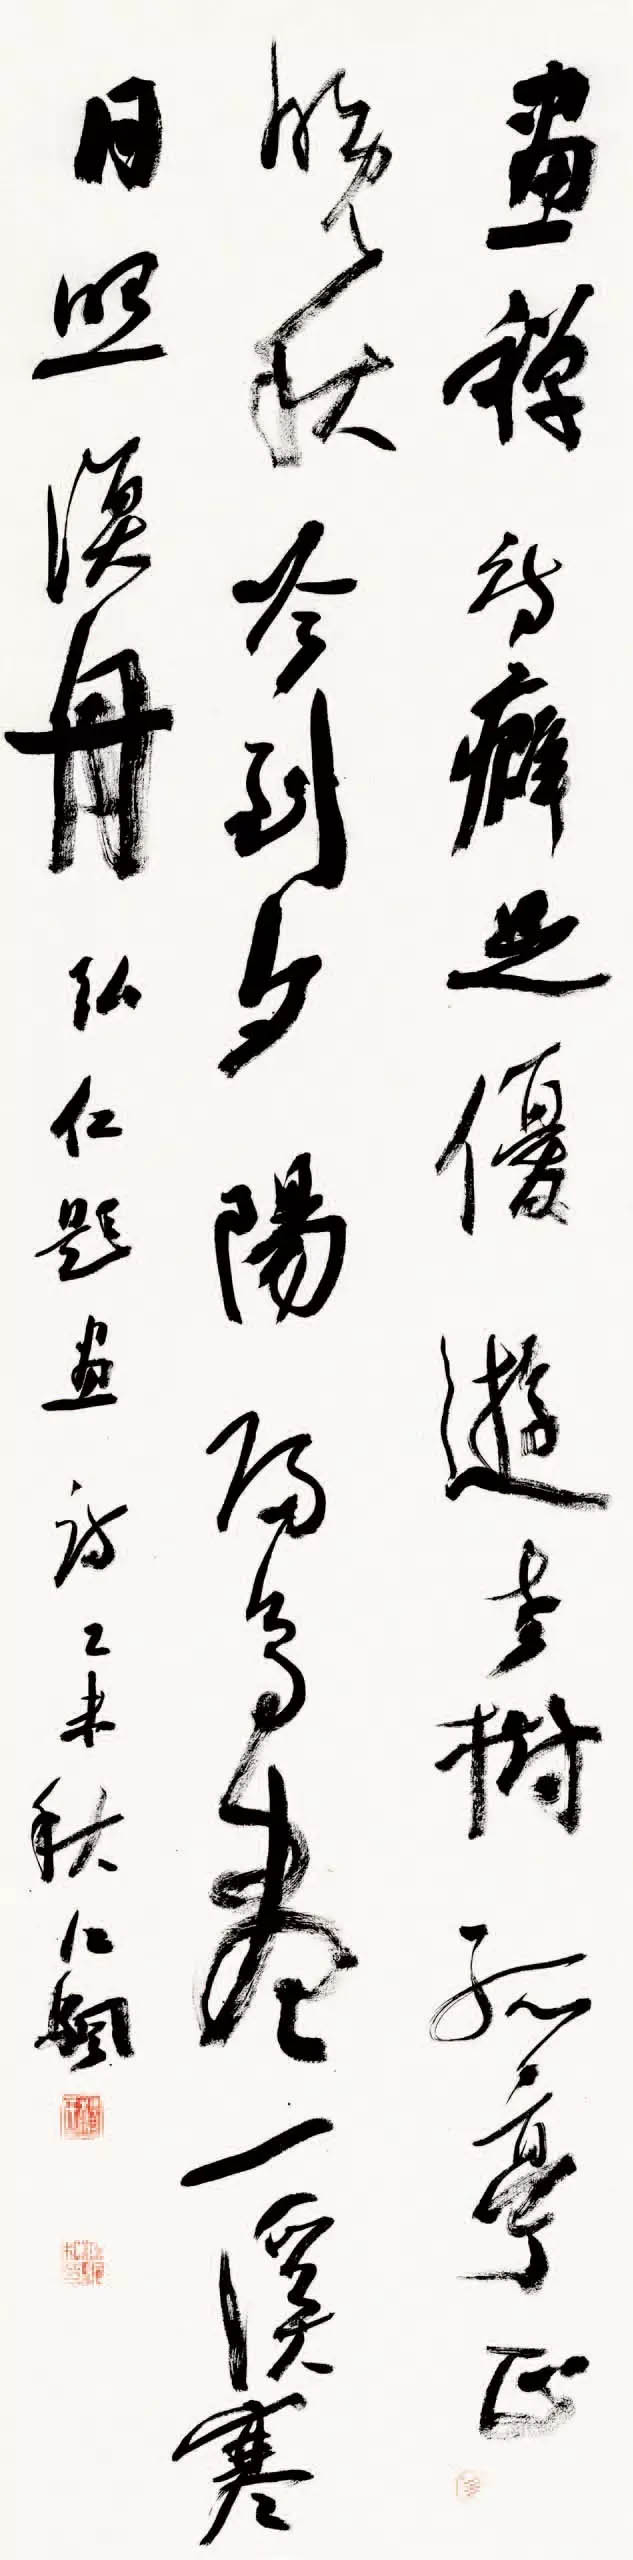 畫禪詩癖足優遊老樹孤亭正
晚秋吟到夕陽歸鳥盡一溪寒
月照漁舟 弘仁題畫詩 乙未秋仁